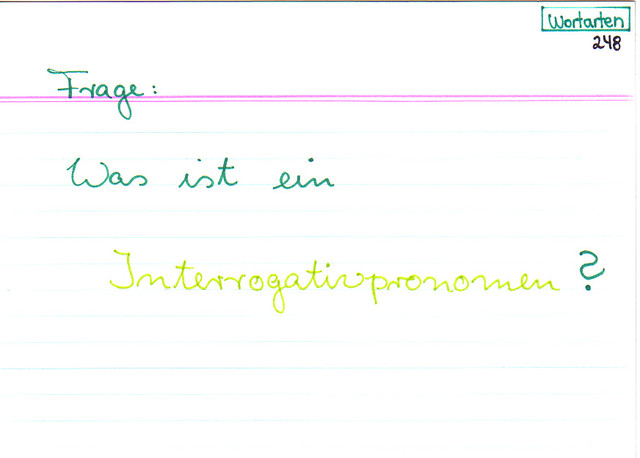 Wortarten
248
Frage:
Was ist ein
Interrogativpronomen?